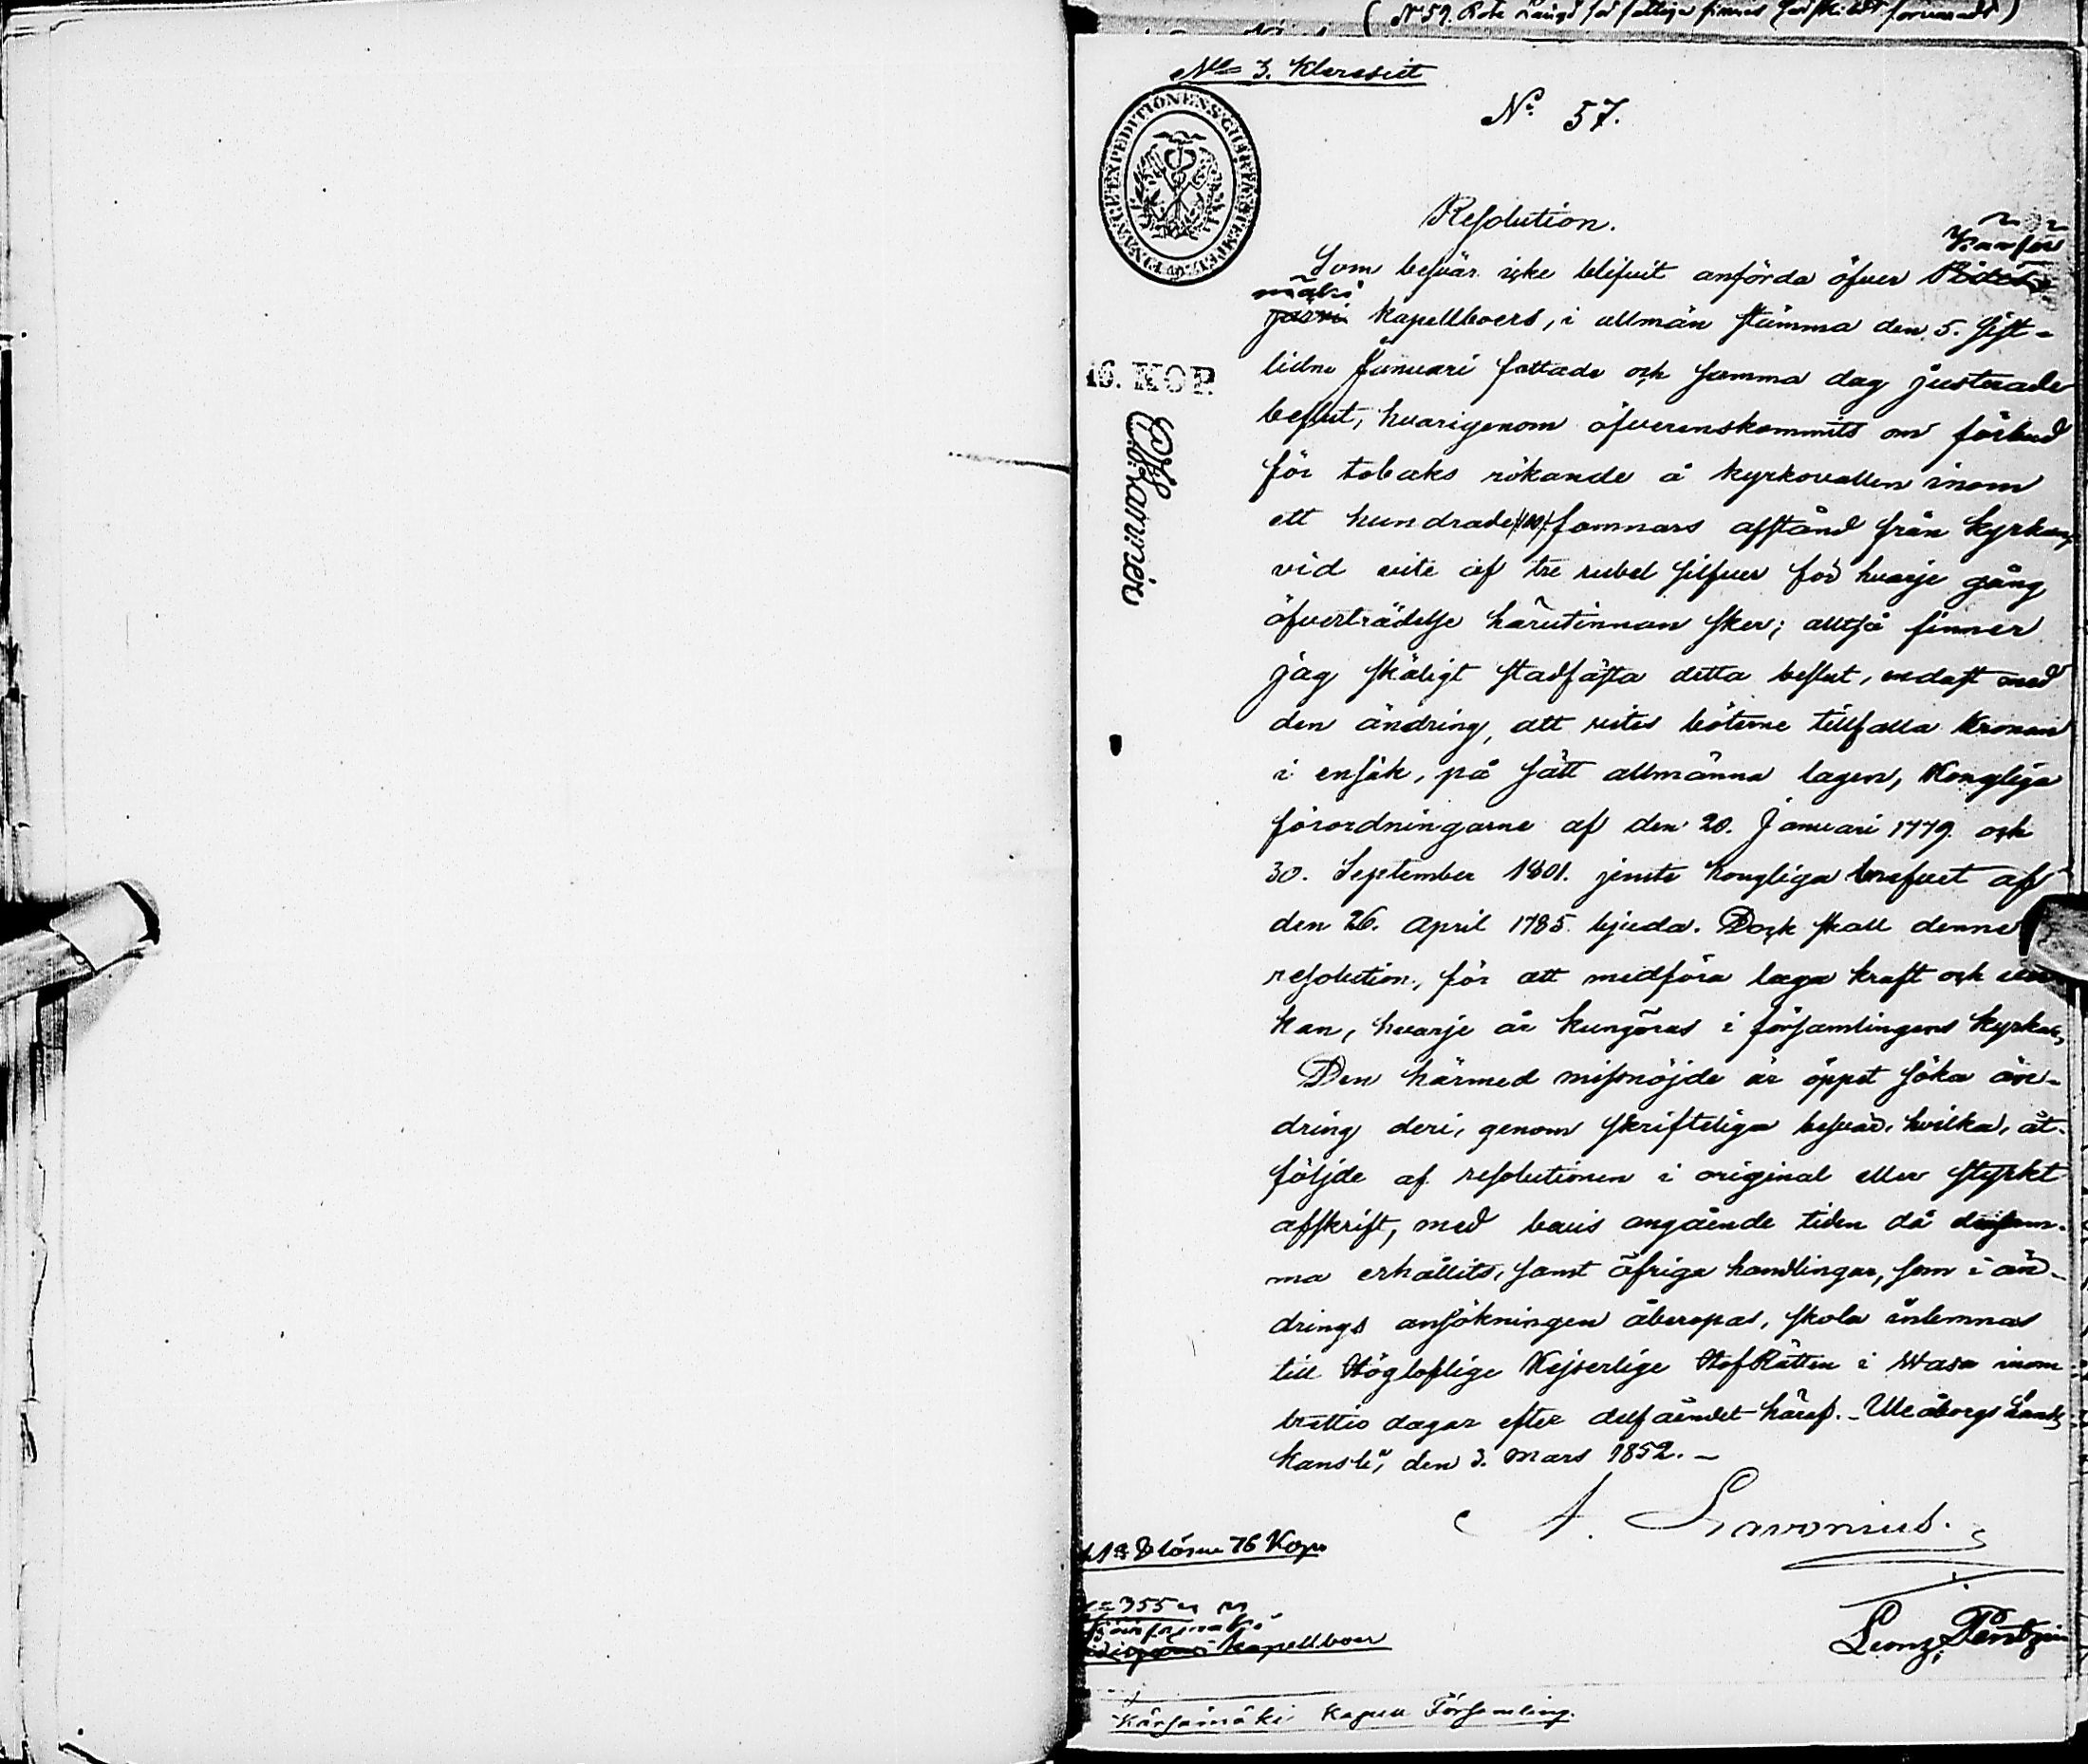 (N 59. Rote Längd
No 3. Kleresiet
No 57.
FINANCE EXPEDITIONENS CHARTÆ STEMPEL
Resolution.
Kärsä
Som besvär icke blifvit anförda öfver
mäki
jarvi Kapellboers, i allmän stämma den 5. sist-
lidne Januari fattade och samma dag justerade
beslut, hvarigenom öfverenskommits om förbud
för tobaks rökande å kyrkovallen inom
ett hundrade /:100:/ famnars afstånd från kyrkan,
vid vite af tre rubel silfver för hvarje gång
öfverträdelse härutinnan sker; alltså finner
jag skäligt stadfästa detta beslut, endast med
den ändring, att vites böterne tillfalla Kronan
i ensak, på sätt allmänna lagen, Kongliga
förordningarne af den 20. Januari 1779. och
30. September 1801. jemte kongliga brefvet af
den 26. April 1785. bjuda. Dock skall denne
resolution, för att medföra laga kraft och ver
kan, hvarje år kungöras i församlingens kyrka,
Den härmed missnöjde är öppet söka än-
dring deri, genom skrifteliga besvär, hvilka, åt-
följde af resolutionen i original eller styrkt
afskrift, med bevis angående tiden då densam-
ma erhållits, samt öfriga handlingar, som i än-
drings ansökningen åberopas, skola inlemnas
till Högloflige Kejserlige HofRätten i Wasa inom
trettio dagar efter delfåendet häraf. Uleåborgs Lands
kansli, den 3. Mars 1852.
A. Lavonius.
Lösen 76 Kop
355
Kärsämäki
Kapellboer
Kärsämäki Kapell Församling.
16. KOP.